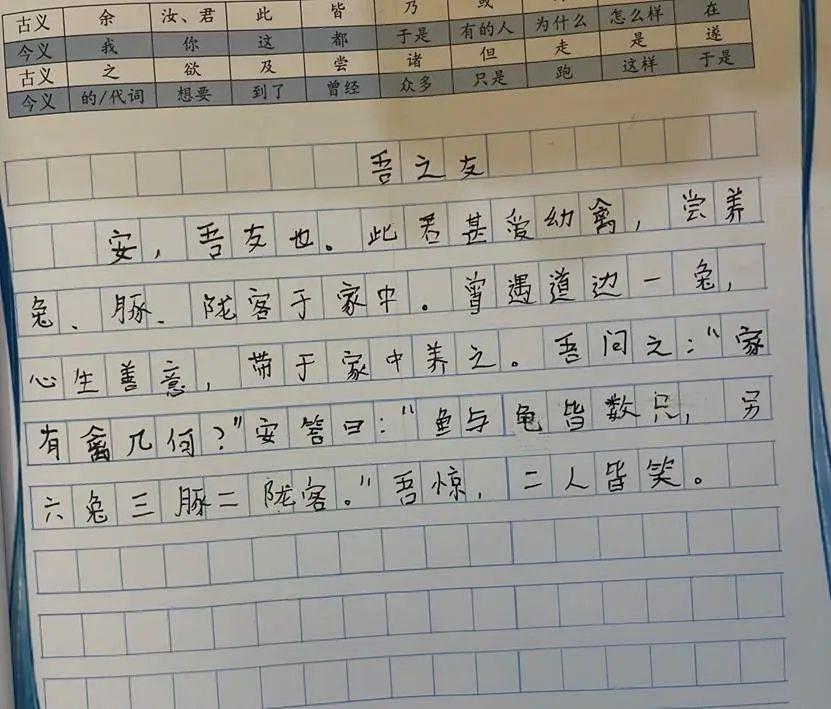 古义 余 汝、君 此 皆 乃 或
今义 我 你 这 都 于是 有的人 为什么 怎么样 在
古义 之 欲 及 尝 诸 但 走 是 遂
今义 的/代词 想要 到了 曾经 众多 只是 跑 这样 于是
吾之友
安，吾友也。此君甚爱幼禽，尝养
兔、豚、陇客于家中。曾遇道边一兔，
心生善意，带于家中养之。吾问之：“家
有禽几何？”安答曰：“鱼与龟皆数只，另
六兔三豚二陇客。”吾惊，二人皆笑。